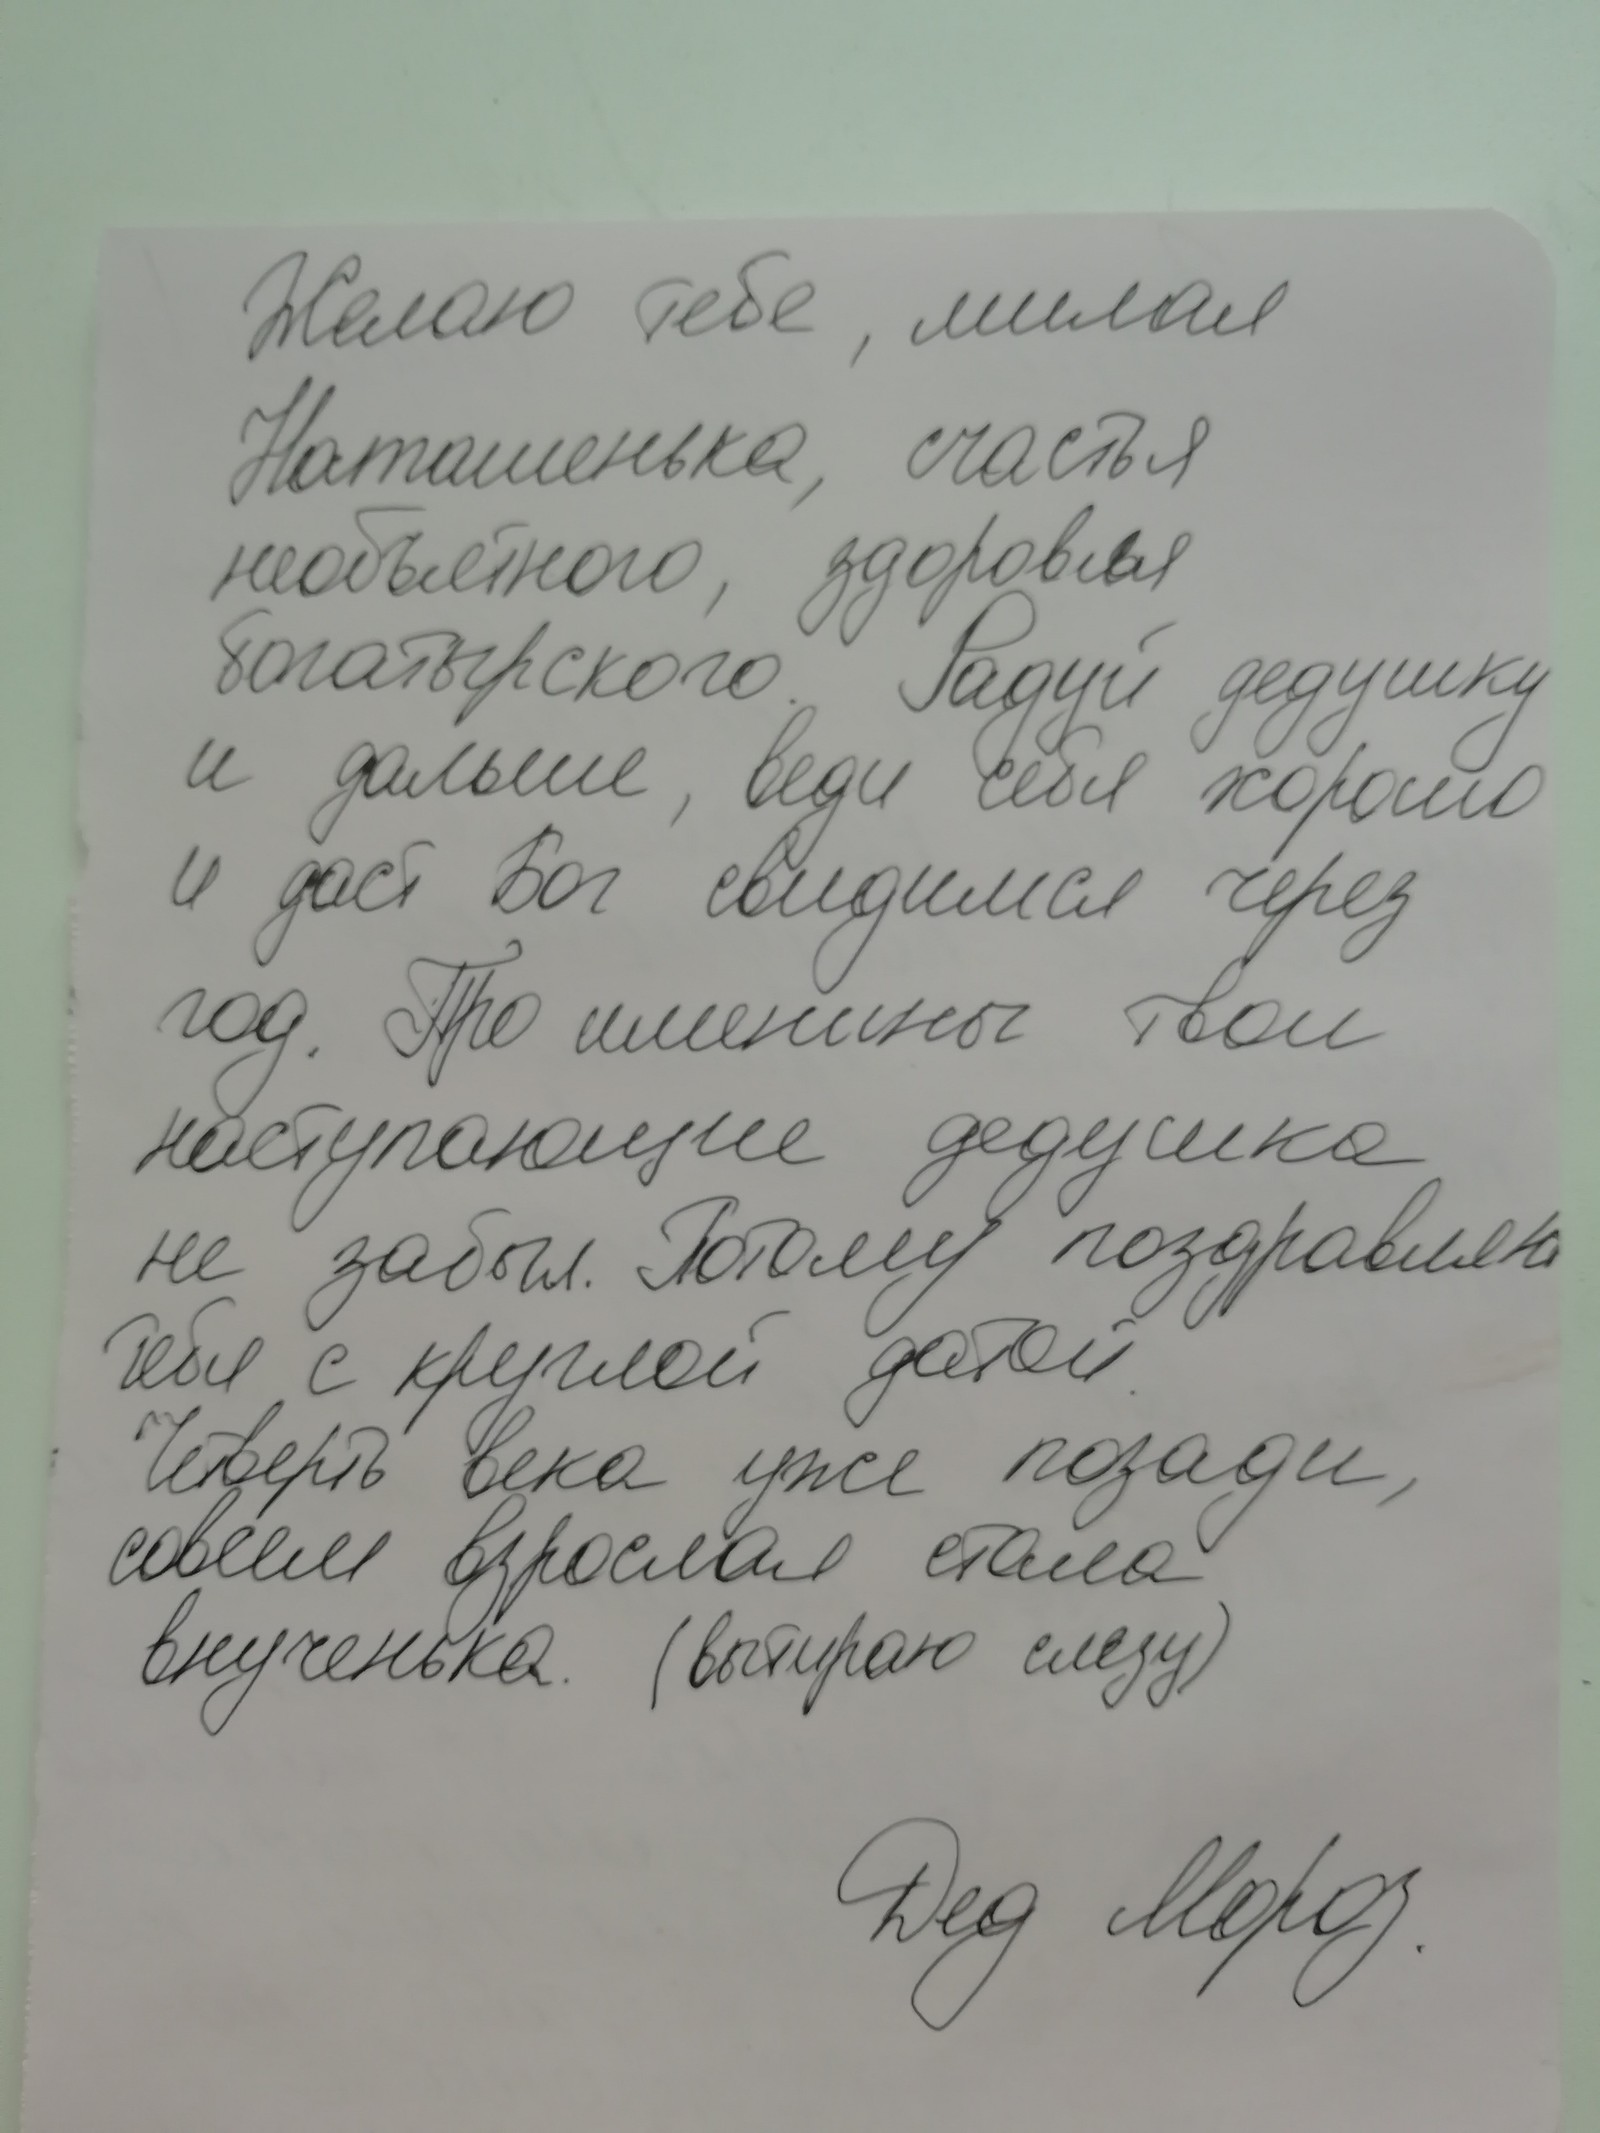 Желаю тебе, милая
Наташенька, счастья
необъятного, здоровья
богатырского. Радуй дедушку
и дальше, веди себя хорошо
и даст Бог свидимся через
год. Про именины твои
наступающие дедушка
не забыл. Потому поздравляю
тебя с круглой датой.
Четверть века уже позади,
совсем взрослая стала
внученька. (вытираю слезу)
Дед Мороз.